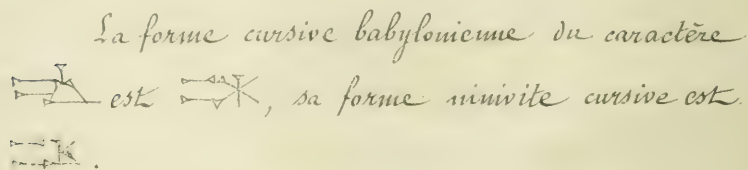 La forme cursive babylonienne du caractère
est , sa forme ninivite cursive est
.